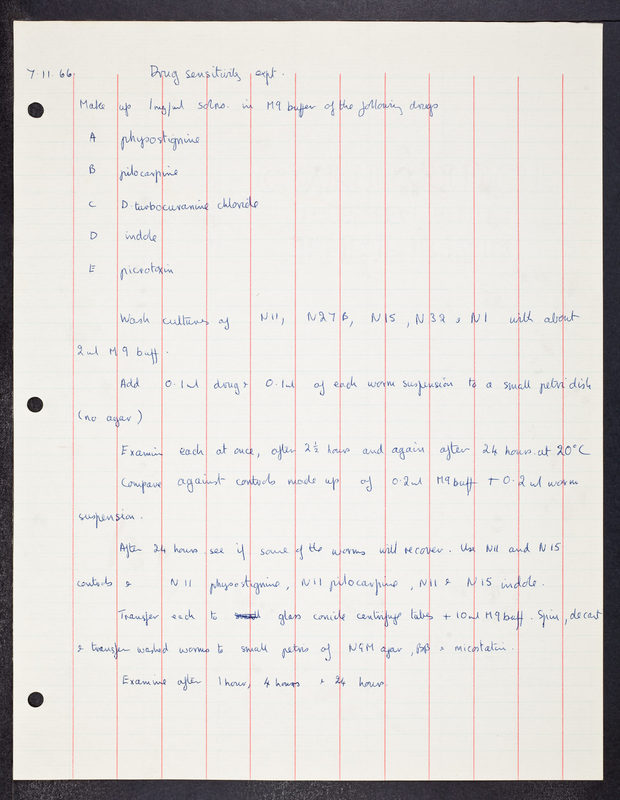 7.11.66. Drug sensitivity expt.
Make up 1mg/ml solns. in M9 buffer of the following drugs
A physostigmine
B pilocarpine
C D-turbocuranine chloride
D indole
E picrotoxin
Wash cultures of N11, N27B, N15, N32 & N1 with about
2ml M9 buff.
Add 0.1ml drug & 0.1ml of each worm suspension to a small petri dish
(no agar)
Examine each at once, after 2½ hours and again after 24 hours at 20°C
Compare against controls made up of 0.2ml M9 buff + 0.2ml worm
suspension.
After 24 hours see if some of the worms will recover. Use N11 and N15
controls & N11 physostigmine, N11 pilocarpine, N11 & N15 indole.
Transfer each to small glass conicle centrifuge tubes + 10ml M9 buff. Spin, decant
& transfer washed worms to small petris of NGM agar, BB & micostatin.
Examine after 1 hour, 4 hours & 24 hours.